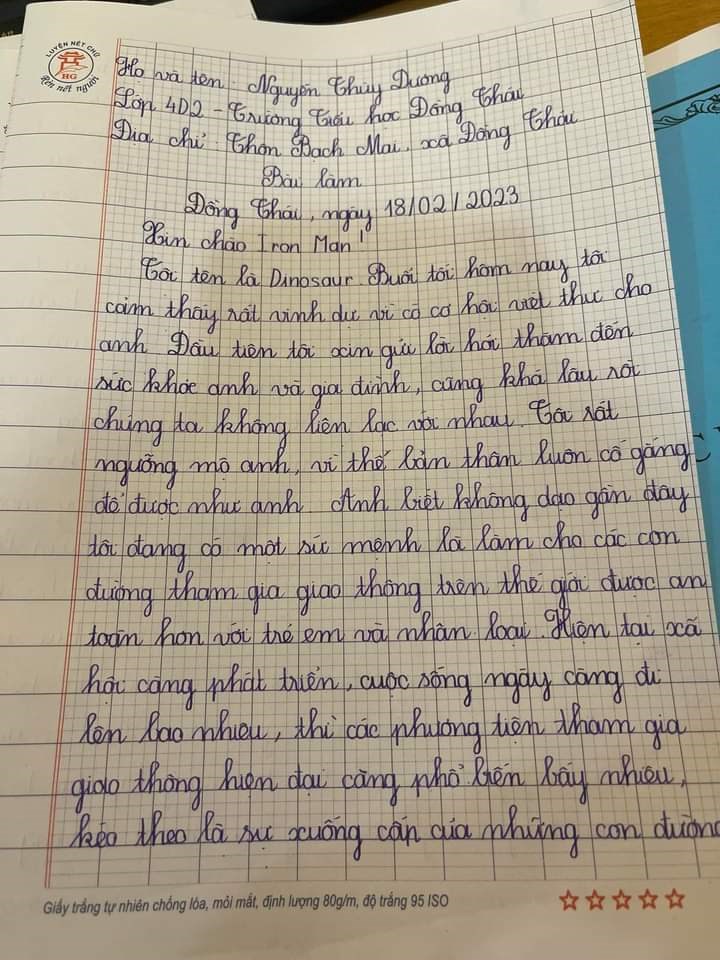 LUYỆN NÉT CHỮ
HG
Rèn nết người
Họ và tên: Nguyễn Thùy Dương
Lớp 4D2 - Trường Tiểu học Đồng Thái
Địa chỉ: Thôn Bạch Mai, xã Đồng Thái
Bài làm
Đồng Thái, ngày 18/02/2023
Xin chào Iron Man!
Tôi tên là Dinosaur. Buổi tối hôm nay tôi
cảm thấy rất vinh dự vì có cơ hội viết thư cho
anh. Đầu tiên tôi xin gửi lời hỏi thăm đến
sức khỏe anh và gia đình, cũng khá lâu rồi
chúng ta không liên lạc với nhau. Tôi rất
ngưỡng mộ anh, vì thế bản thân luôn cố gắng
để được như anh. Anh biết không dạo gần đây
tôi đang có một sứ mệnh là làm cho các con
đường tham gia giao thông trên thế giới được an
toàn hơn với trẻ em và nhân loại. Hiện tại xã
hội càng phát triển, cuộc sống ngày càng đi
lên bao nhiêu, thì các phương tiện tham gia
giao thông hiện đại càng phổ biến bấy nhiêu,
kéo theo là sự xuống cấp của những con đường
Giấy trắng tự nhiên chống lóa, mỏi mắt, định lượng 80g/m, độ trắng 95 ISO